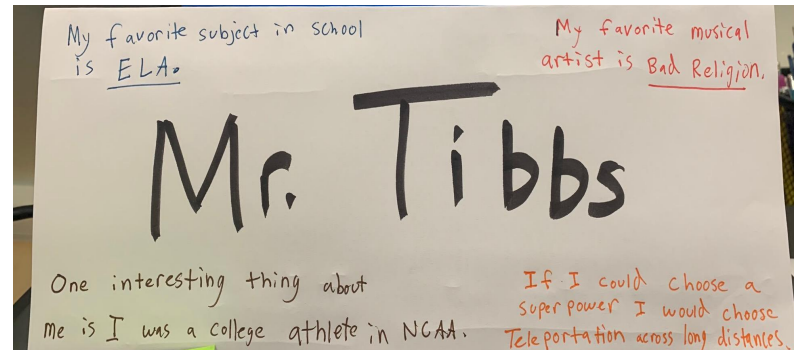 My favorite subject in school
is ELA.
My favorite musical
artist is Bad Religion.
Mr. Tibbs
One interesting thing about
me is I was a college athlete in NCAA.
If I could choose a
superpower I would choose
Teleportation across long distances.